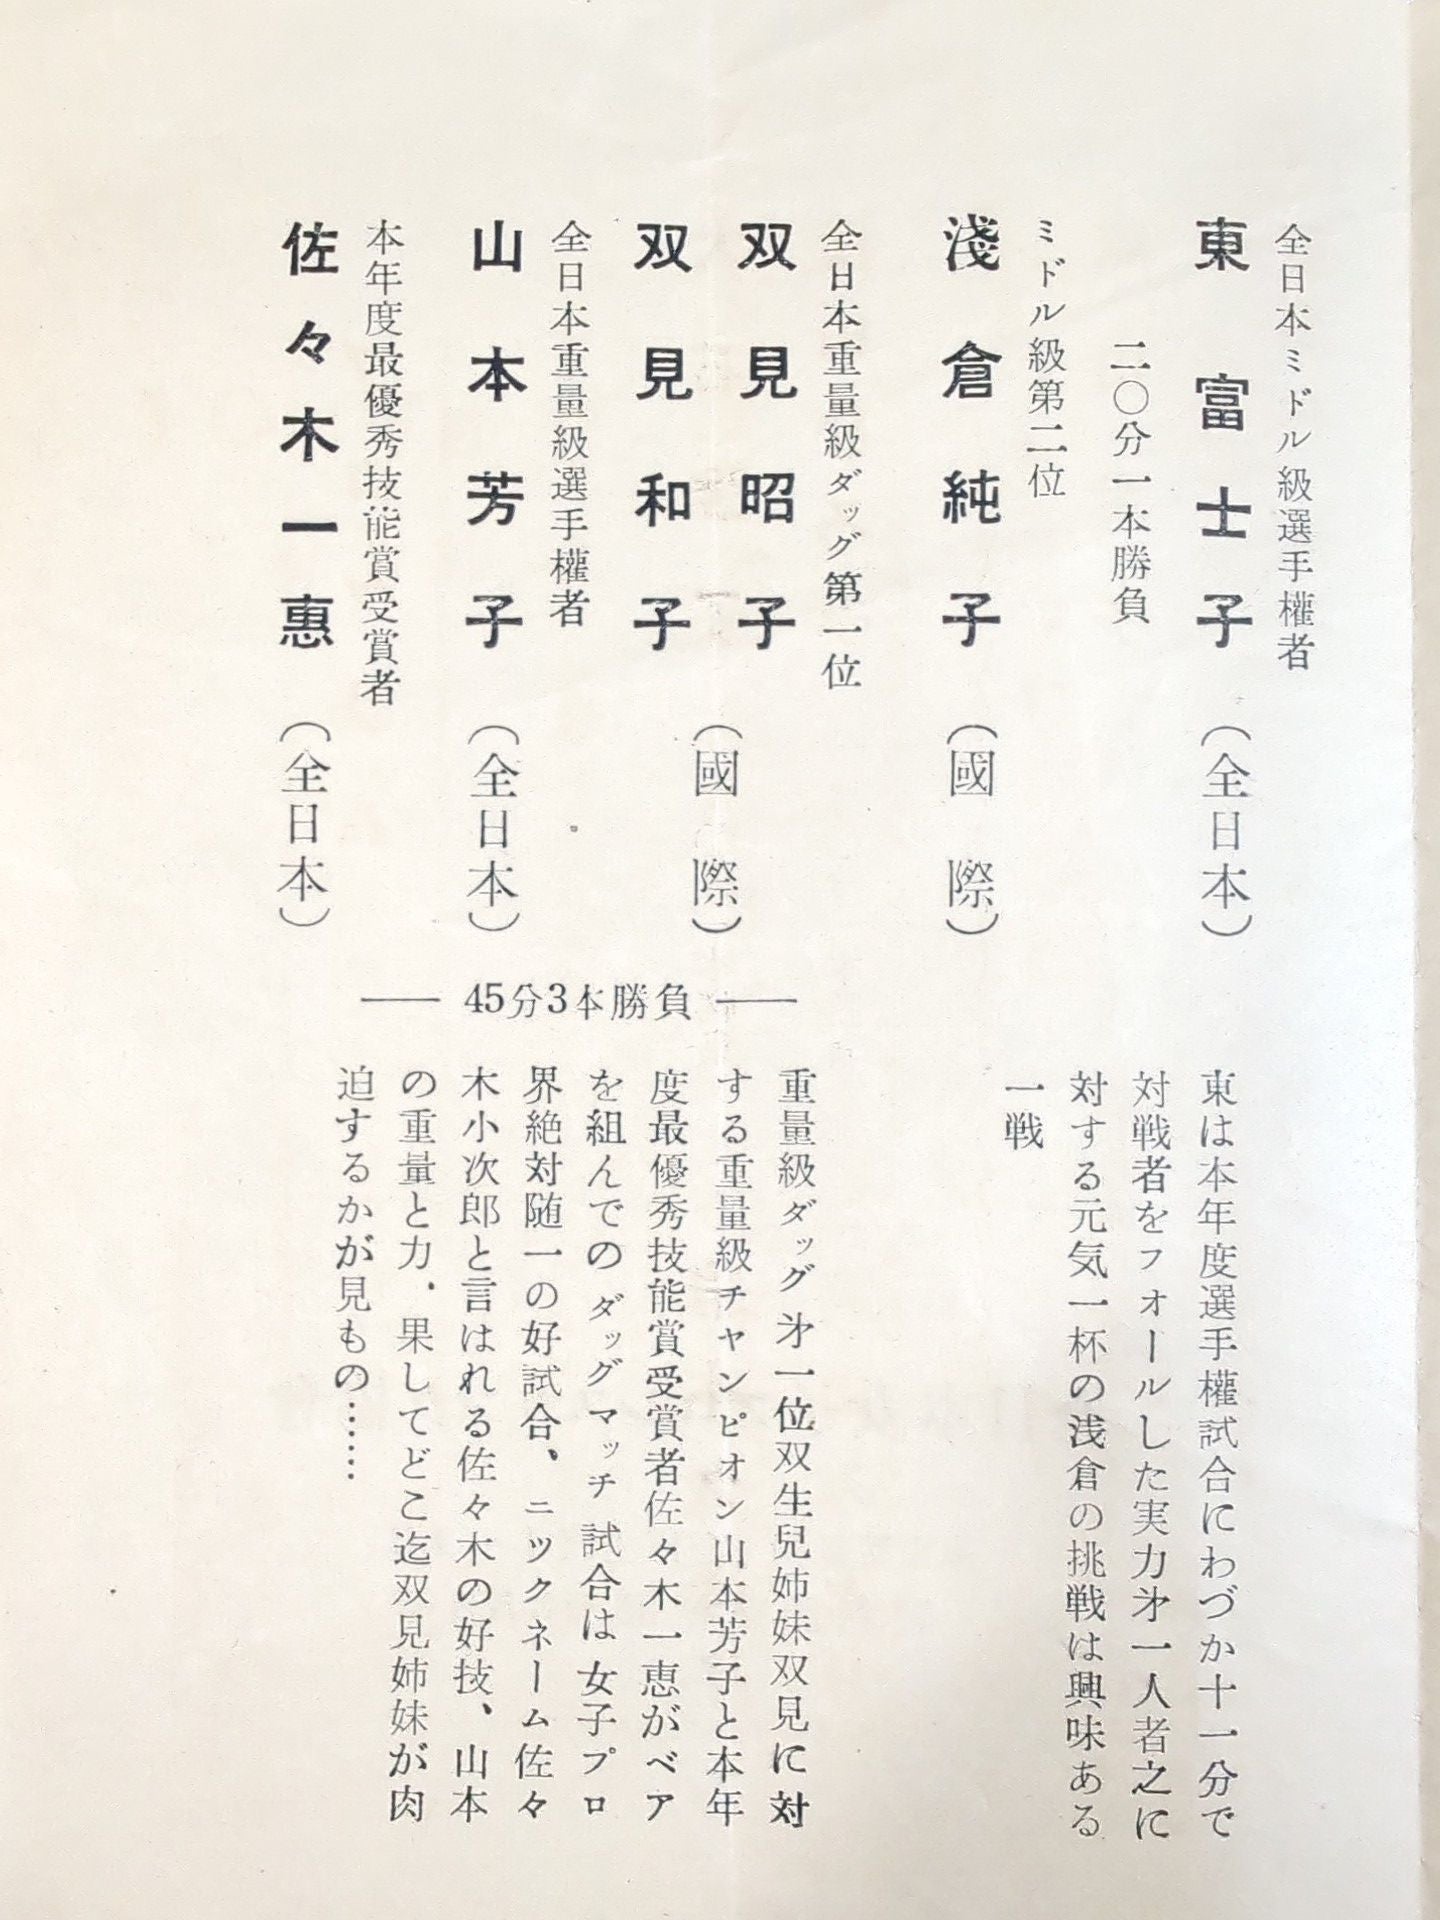 全日本ミドル級選手權者
東富士子（全日本）
二〇分一本勝負
ミドル級第二位
淺倉純子（國際）
東は本年度選手權試合にわづか十一分で
対戦者をフォールした実力㐧一人者之に
対する元気一杯の浅倉の挑戦は興味ある
一戦
全日本重量級ダッグ第一位
双見昭子
双見和子
（國際）
全日本重量級選手權者
山本芳子（全日本）
本年度最優秀技能賞受賞者
佐々木一惠（全日本）
45分3本勝負
重量級ダッグ㐧一位双生兒姉妹双見に対
する重量級チャンピオン山本芳子と本年
度最優秀技能賞受賞者佐々木一恵がベア
を組んでのダッグマッチ試合は女子プロ
界絶対随一の好試合、ニックネーム佐々
木小次郎と言はれる佐々木の好技、山本
の重量と力．果してどこ迄双見姉妹が肉
迫するかが見もの……